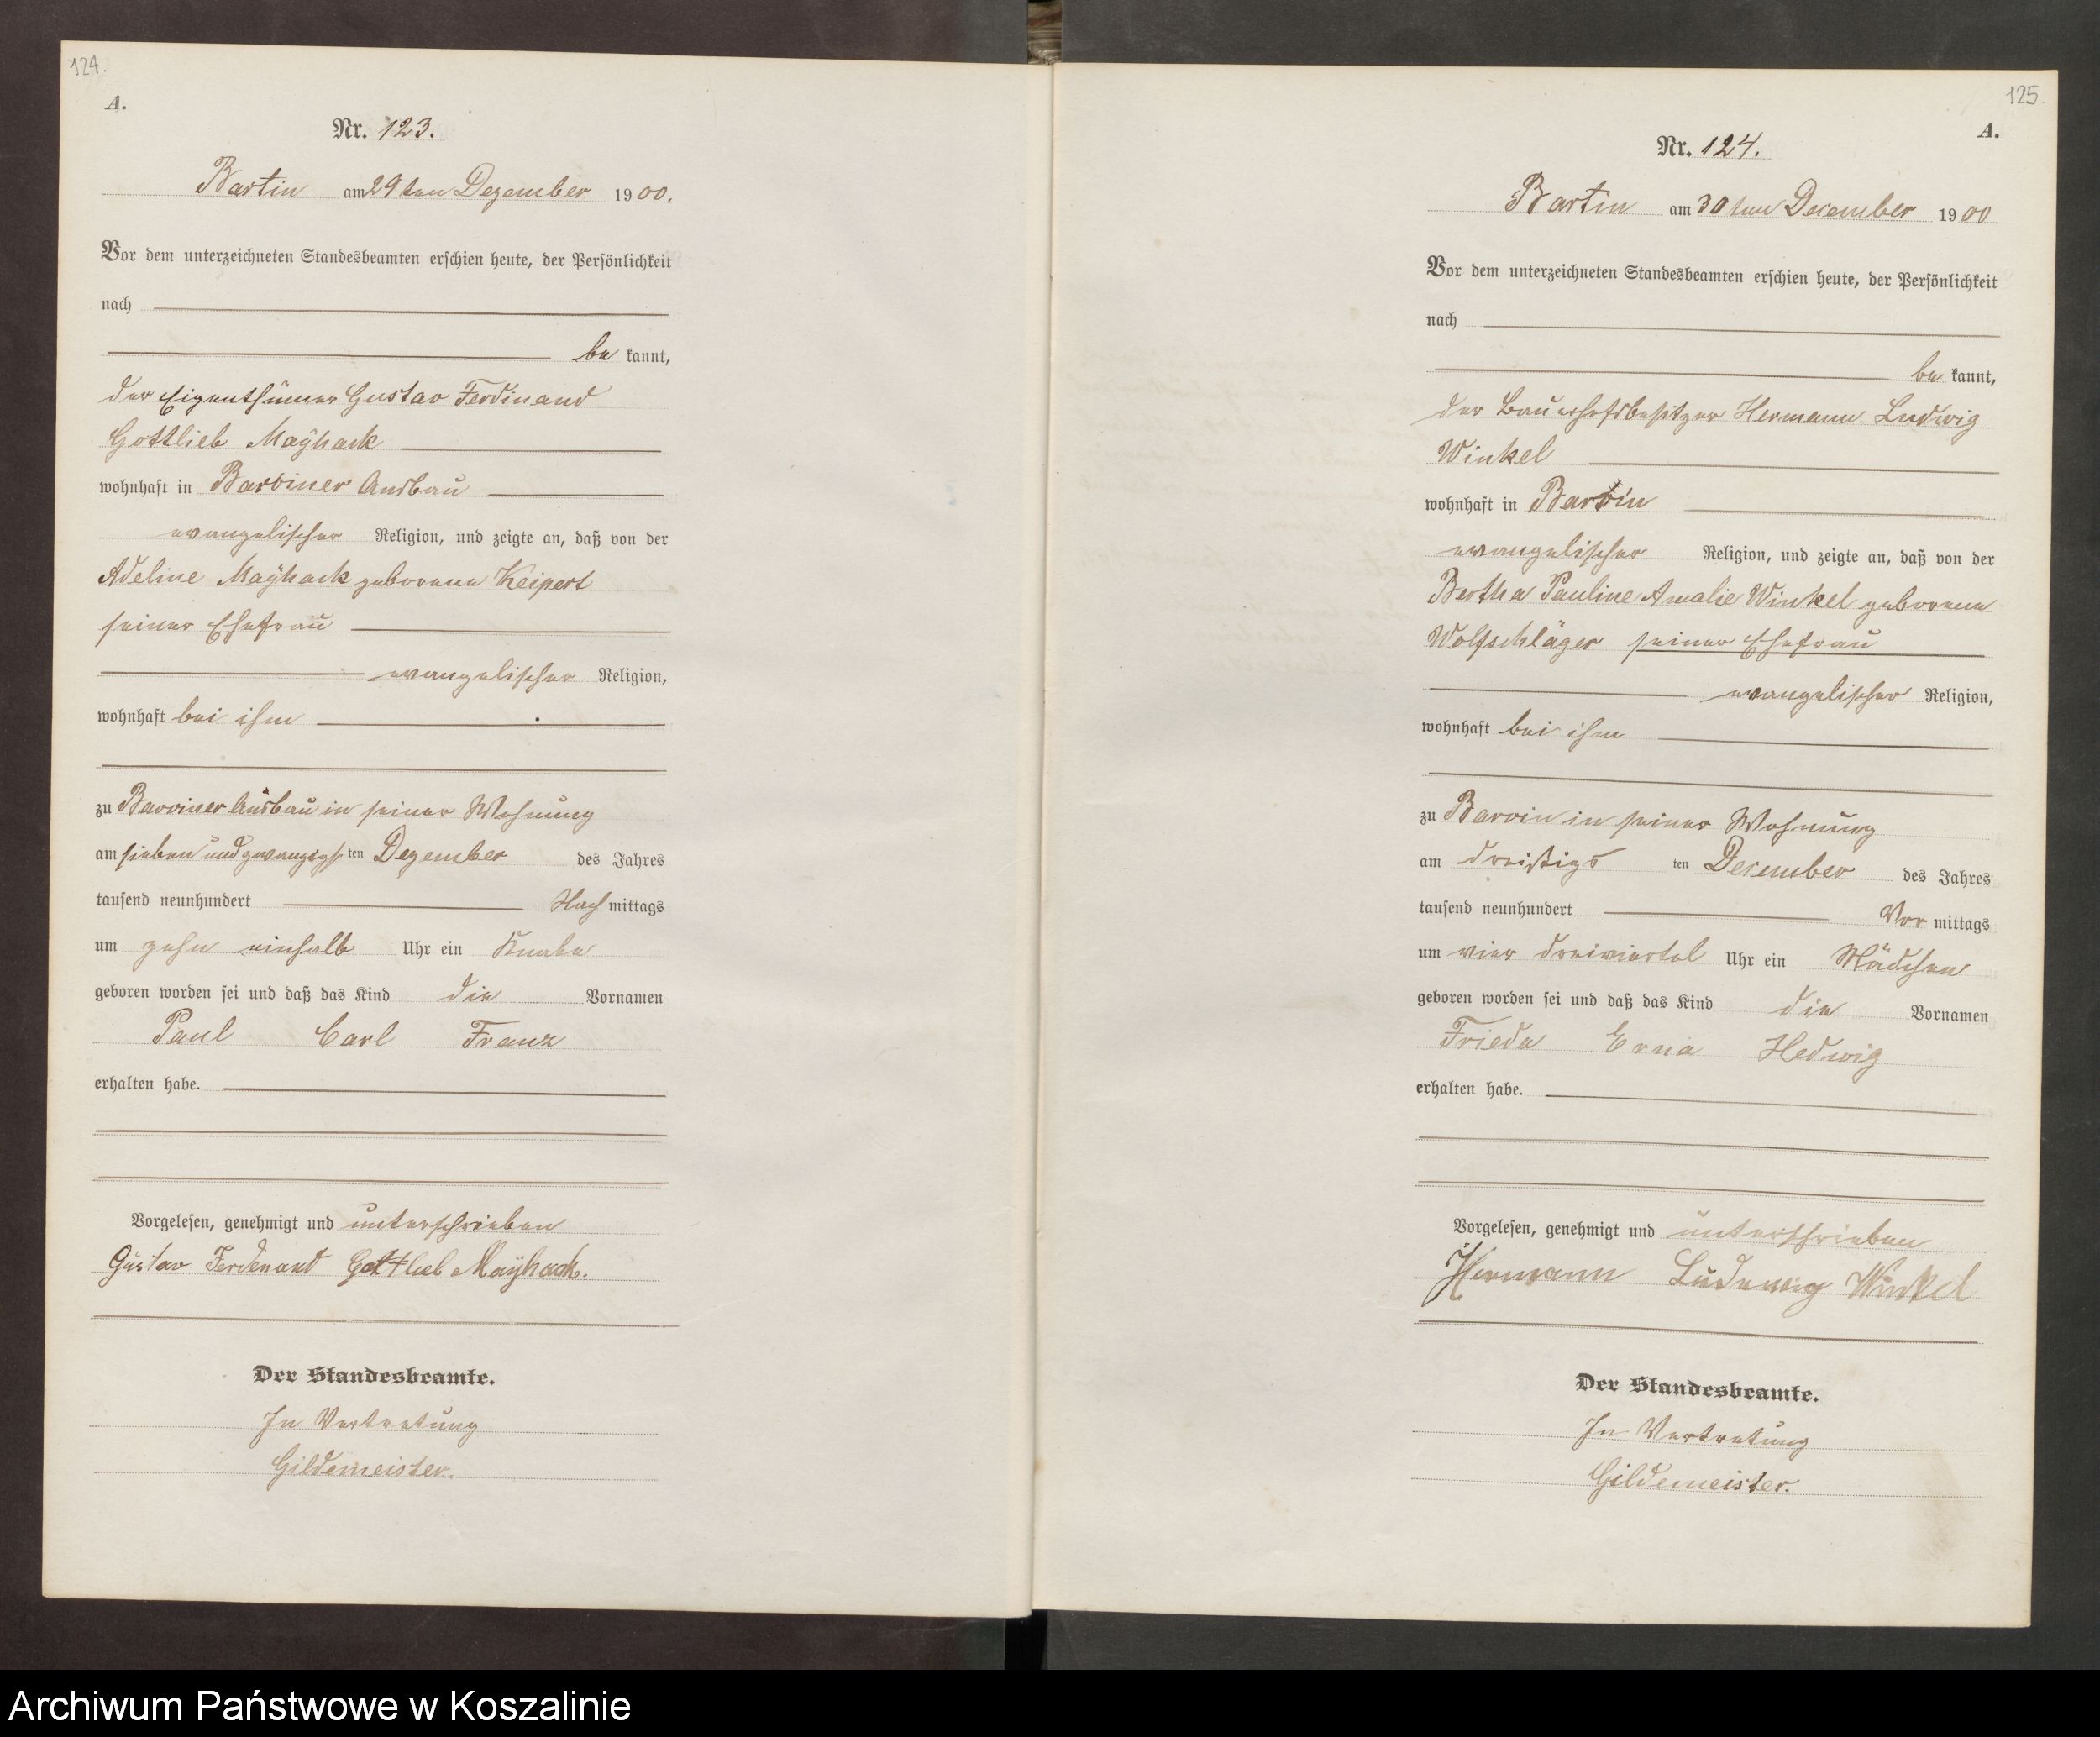 124.
A.
Nr. 123.
Bartin am 29ten Dezember 1900.
Vor dem unterzeichneten Standesbeamten erschien heute, der Persönlichkeit
nach
be kannt,
der Eigenthümer Gustav Ferdinand
Gottlieb Mayhack
wohnhaft in Barviner Ausbau
evangelischer Religion, und zeigte an, daß von der
Adeline Mayhack geborene Keipert
seiner Ehefrau
evangelischer Religion,
wohnhaft bei ihm
zu Barviner Ausbau in seiner Wohnung
am sieben und zwanzigsten Dezember des Jahres
tausend neunhundert Nachmittags
um zehn einhalb Uhr ein Knabe
geboren worden sei und daß das Kind die Vornamen
Paul Carl Franz
erhalten habe.
Vorgelesen, genehmigt und unterschrieben
Gustav Ferdinand Gottlieb Mayhack.
Der Standesbeamte.
In Vertretung
Gildemeister.
125.
A.
Nr. 124.
Bartin am 30ten December 1900
Vor dem unterzeichneten Standesbeamten erschien heute, der Persönlichkeit
nach
be kannt,
der Bauerhofsbesitzer Hermann Ludwig
Winkel
wohnhaft in Barvin
evangelischer Religion, und zeigte an, daß von der
Bertha Pauline Amalie Winkel geborene
Wolfschläger seiner Ehefrau
evangelischer Religion,
wohnhaft bei ihm
zu Barvin in seiner Wohnung
am dreißigsten December des Jahres
tausend neunhundert Vormittags
um vier dreiviertel Uhr ein Mädchen
geboren worden sei und daß das Kind die Vornamen
Frieda Erna Hedwig
erhalten habe.
Vorgelesen, genehmigt und unterschrieben
Hermann Ludewig Winkel
Der Standesbeamte.
In Vertretung
Gildemeister.
Archiwum Państwowe w Koszalinie